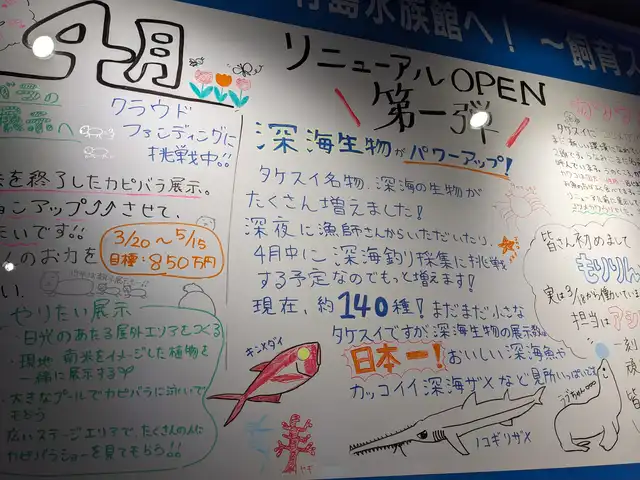 竹島水族館へ! ~飼育ス
4月
リニューアルOPEN
第一弾
クラウド
ファンディングに
挑戦中!!
を終了したカピバラ展示。
ョンアップ⤴⤴させて、
いです!!
んのお力を
3/20~5/15
目標:850万円
い.
やりたい展示
・日光のあたる屋外エリアをつくる
・現地 南米をイメージした植物を
一緒に展示する
大きなプールでカピバラに泳いで
もらう
広いステージエリアで、たくさんの人に
カピバラショーを見てもらう!!
深海生物がパワーアップ!
タケスイ名物、深海の生物が
たくさん増えました!
深夜に漁師さんからいただいたり、
4月中に深海釣り採集に挑戦
する予定なのでもっと増えます!
現在、約140種!まだまだ小さな
タケスイですが深海生物の展示数
日本一!おいしい深海魚や
カッコイイ深海ザメなど見所いっぱいです
キンメダイ
ノコギリザメ
皆さん初めまして
もりりん
実は3/18から働いている
担当はアシ